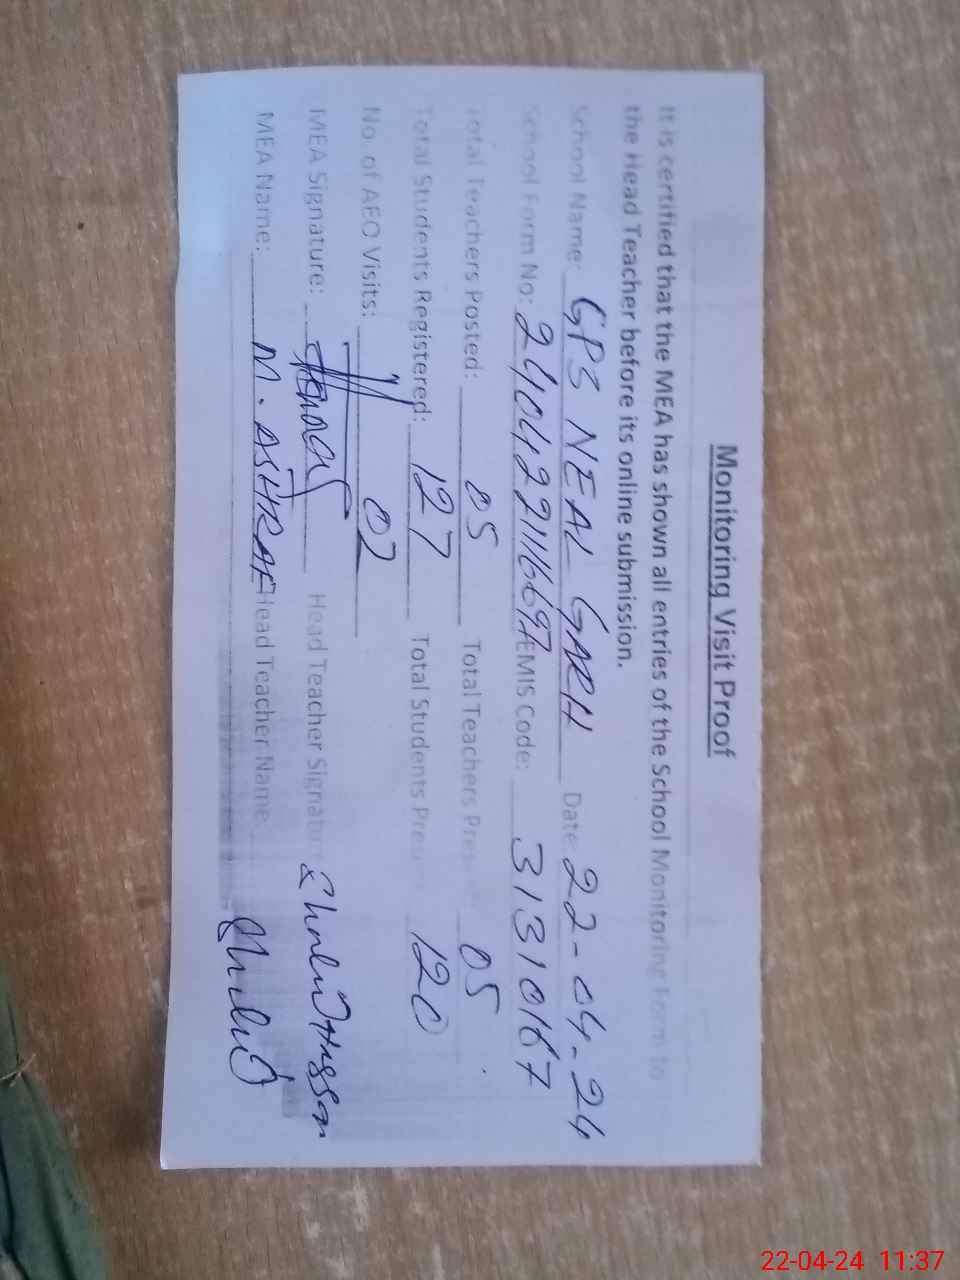 Monitoring Visit Proof
It is certified that the MEA has shown all entries of the School Monitoring Form to
the Head Teacher before its online submission.
School Name: GPS NEAL GARH Date 22-04-24
School Form No: 240422116697 EMIS Code: 31310167
Total Teachers Posted: 05 Total Teachers Pres 05
Total Students Registered: 127 Total Students Pres 120
No. of AEO Visits: 02
MEA Signature: Head Teacher Signature
MEA Name: M. ASHRAF Head Teacher Name
22-04-24 11:37